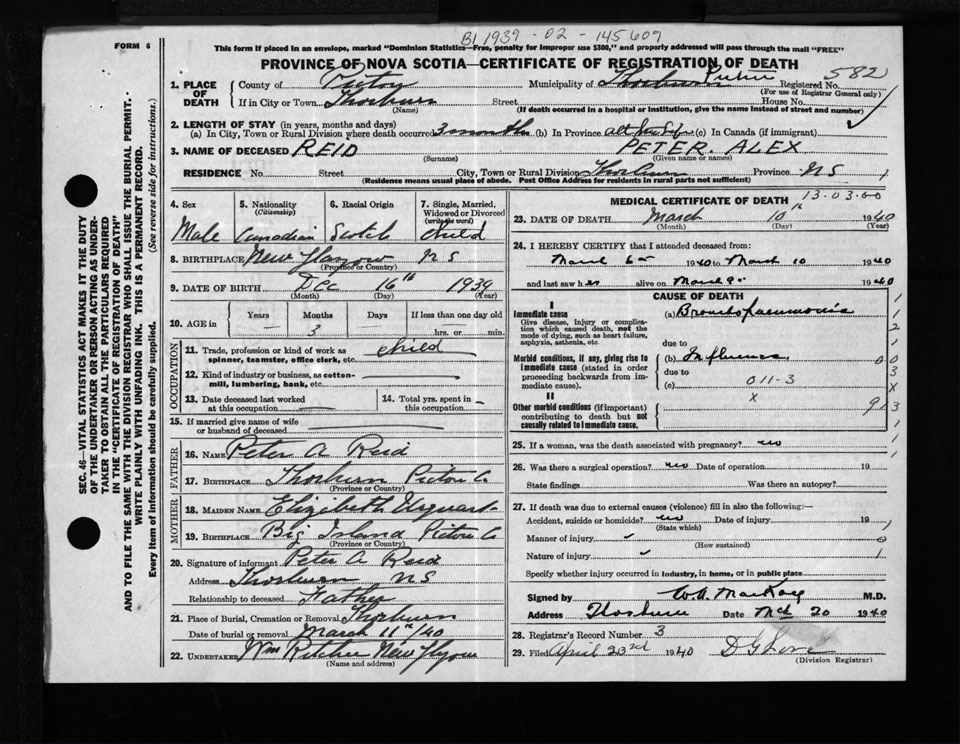 B1 1939 - 02 - 145607
FORM 6
This form if placed in an envelope, marked "Dominion Statistics—Free, penalty for improper use $300," and properly addressed will pass through the mail "FREE"
PROVINCE OF NOVA SCOTIA—CERTIFICATE OF REGISTRATION OF DEATH
582
1. PLACE OF DEATH
County of Pictou Municipality of Pictou Registered No.
(For use of Registrar General only)
If in City or Town Thorburn Street House No.
(Name) (If death occurred in a hospital or institution, give the name instead of street and number)
2. LENGTH OF STAY (in years, months and days)
(a) In City, Town or Rural Division where death occurred 3 months (b) In Province all his life (c) In Canada (if immigrant)
3. NAME OF DECEASED REID PETER ALEX
(Surname) (Given name or names)
RESIDENCE No. Street City, Town or Rural Division Thorburn Province N S
(Residence means usual place of abode. Post Office Address for residents in rural parts not sufficient)
4. Sex Male
5. Nationality (Citizenship) Canadian
6. Racial Origin Scotch
7. Single, Married, Widowed or Divorced (write the word) child
8. BIRTHPLACE New Glasgow N S
(Province or Country)
9. DATE OF BIRTH Dec 16th 1939
(Month) (Day) (Year)
10. AGE in Years Months Days If less than one day old
— 3 hrs. or min.
OCCUPATION
11. Trade, profession or kind of work as spinner, teamster, office clerk, etc. child
12. Kind of industry or business, as cotton-mill, lumbering, bank, etc.
13. Date deceased last worked at this occupation
14. Total yrs. spent in this occupation
15. If married give name of wife or husband of deceased
FATHER
16. NAME Peter A Reid
17. BIRTHPLACE Thorburn Pictou Co
(Province or Country)
MOTHER
18. MAIDEN NAME Elizabeth Urquhart
19. BIRTHPLACE Big Island Pictou Co
(Province or Country)
20. Signature of informant Peter A Reid
Address Thorburn N S
Relationship to deceased Father
21. Place of Burial, Cremation or Removal Thorburn
Date of burial or removal March 11th/40
22. UNDERTAKER Wm Ritchie New Glasgow
(Name and address)
MEDICAL CERTIFICATE OF DEATH
13.03.60
23. DATE OF DEATH March 10th 1940
(Month) (Day) (Year)
24. I HEREBY CERTIFY that I attended deceased from:
March 6th 1940 to March 10 1940
and last saw him alive on March 9th 1940
CAUSE OF DEATH
I
Immediate cause
Give disease, injury or complication which caused death, not the mode of dying, such as heart failure, asphyxia, asthenia, etc.
(a) Broncho pneumonia
due to
Morbid conditions, if any, giving rise to immediate cause (stated in order proceeding backwards from immediate cause).
(b) Influenza
due to
(c) 011-3
x
II
Other morbid conditions (if important) contributing to death but not causally related to immediate cause.
25. If a woman, was the death associated with pregnancy? no
26. Was there a surgical operation? no Date of operation 19
State findings Was there an autopsy?
27. If death was due to external causes (violence) fill in also the following:—
Accident, suicide or homicide? no Date of injury 19
(State which)
Manner of injury
(How sustained)
Nature of injury
Specify whether injury occurred in industry, in home, or in public place
Signed by W.A. MacKay M.D.
Address Thorburn Date Mch 20 1940
28. Registrar's Record Number 3
29. Filed April 23rd 1940
(Division Registrar)
SEC. 46—VITAL STATISTICS ACT MAKES IT THE DUTY OF THE UNDERTAKER OR PERSON ACTING AS UNDERTAKER TO OBTAIN ALL THE PARTICULARS REQUIRED IN THE "CERTIFICATE OF REGISTRATION OF DEATH" AND TO FILE THE SAME WITH THE DIVISION REGISTRAR WHO SHALL ISSUE THE BURIAL PERMIT.
WRITE PLAINLY WITH UNFADING INK. THIS IS A PERMANENT RECORD.
Every item of information should be carefully supplied. (See reverse side for instructions.)